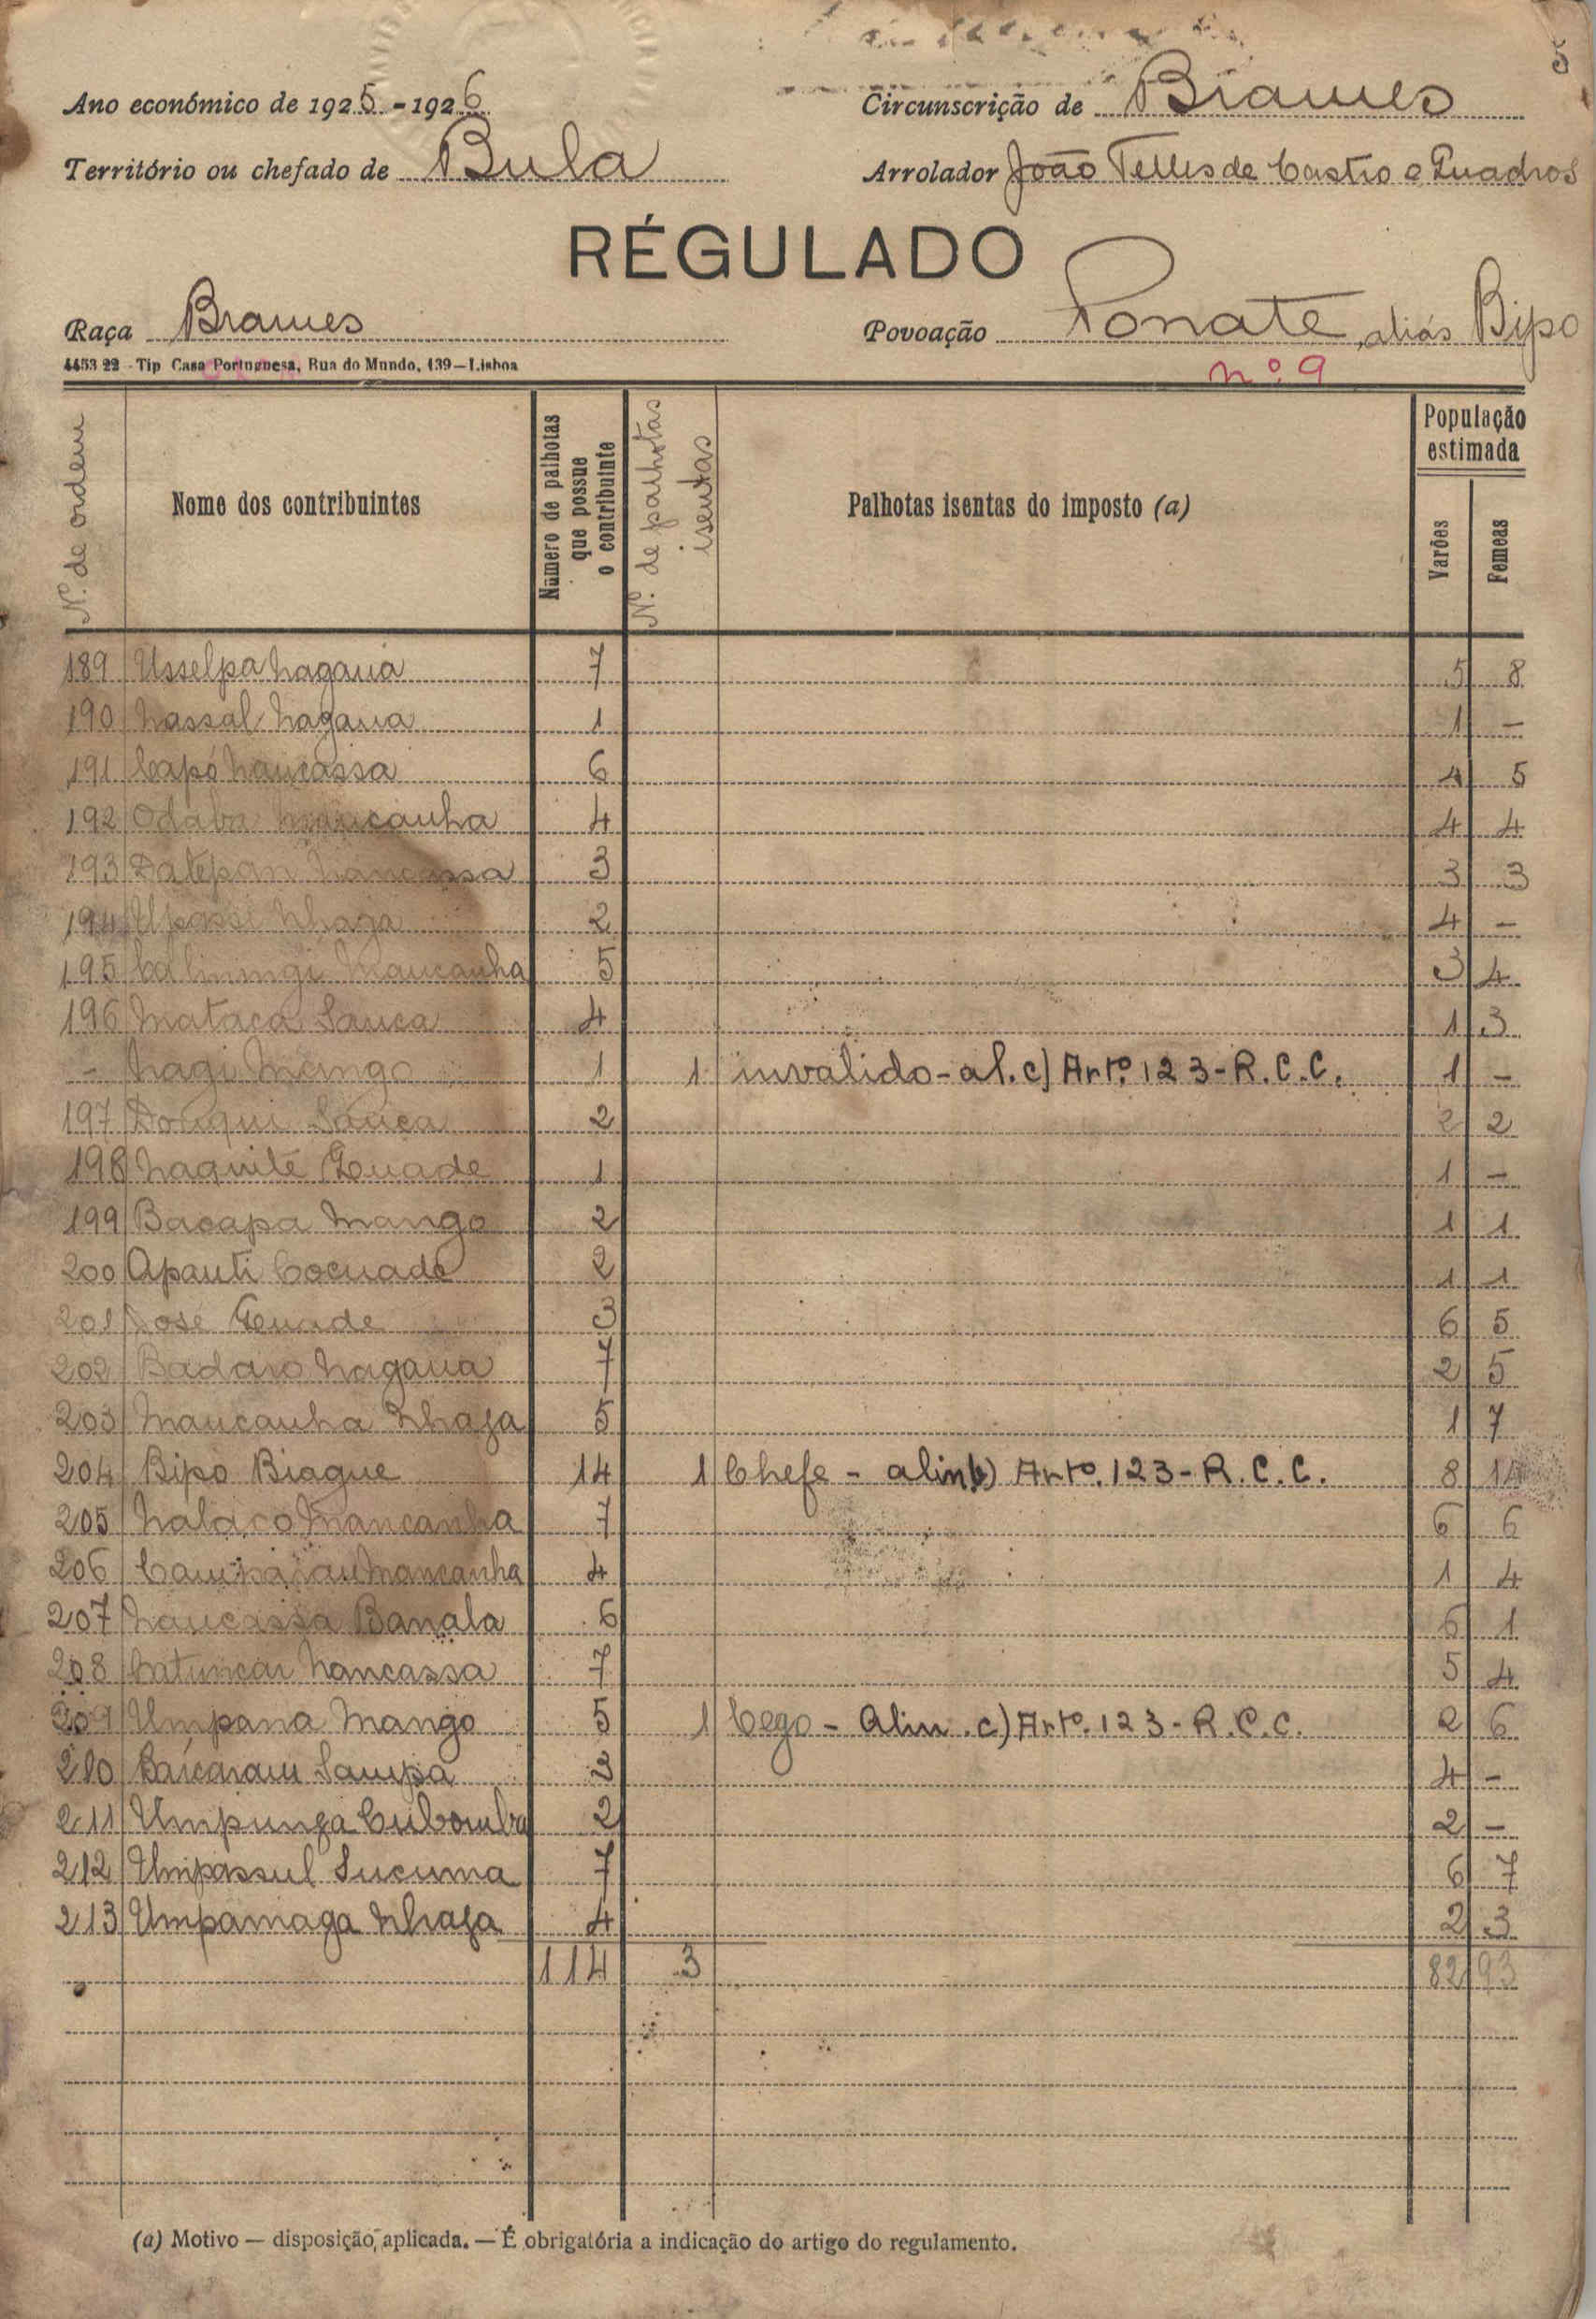 5
Ano económico de 1925-1926 Circunscrição de Brames
Território ou chefado de Bula Arrolador João Telles de Castro e Quadros
RÉGULADO
Raça Brames Povoação Ponate, aliás Bipo
4453 22 - Tip Casa Portuguesa, Rua do Mundo, 139—Lisboa nº 9
Nº. de ordem Nome dos contribuintes Número de palhotas que possue o contribuinte Nº. de palhotas isentas Palhotas isentas do imposto (a) População estimada Varões Femeas
189 Usselpa Nagaua 7 5 8
190 Nassal Nagaua 1 1 -
191 Capó Naucassa 6 4 5
192 Odaba Maucanha 4 4 4
193 Datepan Naucassa 3 3 3
194 Upassi Nhaga 2 4 -
195 Maucanha 5 3 4
196 Mataca Sauca 4 1 3
- Nagi Mango 1 1 invalido-al. c) Artº. 123-R.C.C. 1 -
197 Sauca 2 2 2
198 Naquite Quade 1 1 -
199 Bacapa Mango 2 1 1
200 Apauti Cocuade 2 1 1
201 José Quade 3 6 5
202 Badaro Nagaua 7 2 5
203 Maucanha Nhaga 5 1 7
204 Bipo Biague 14 1 Chefe - alin b) Artº. 123-R.C.C. 8 14
205 Nalaco Mancanha 7 6 6
206 Mancanha 4 1 4
207 Naucassa Banala 6 6 1
208 Catuncar Nancassa 7 5 4
209 Umpana Mango 5 1 Cego - Alin. c) Artº. 123-R.C.C. 2 6
210 Baicaram Sampa 3 4 -
211 Umpunga Cubomba 2 2 -
212 Umpassul Sucuma 7 6 7
213 Umpamaga Nhaga 4 2 3
114 3 82 93
(a) Motivo — disposição, aplicada. — É obrigatória a indicação do artigo do regulamento.